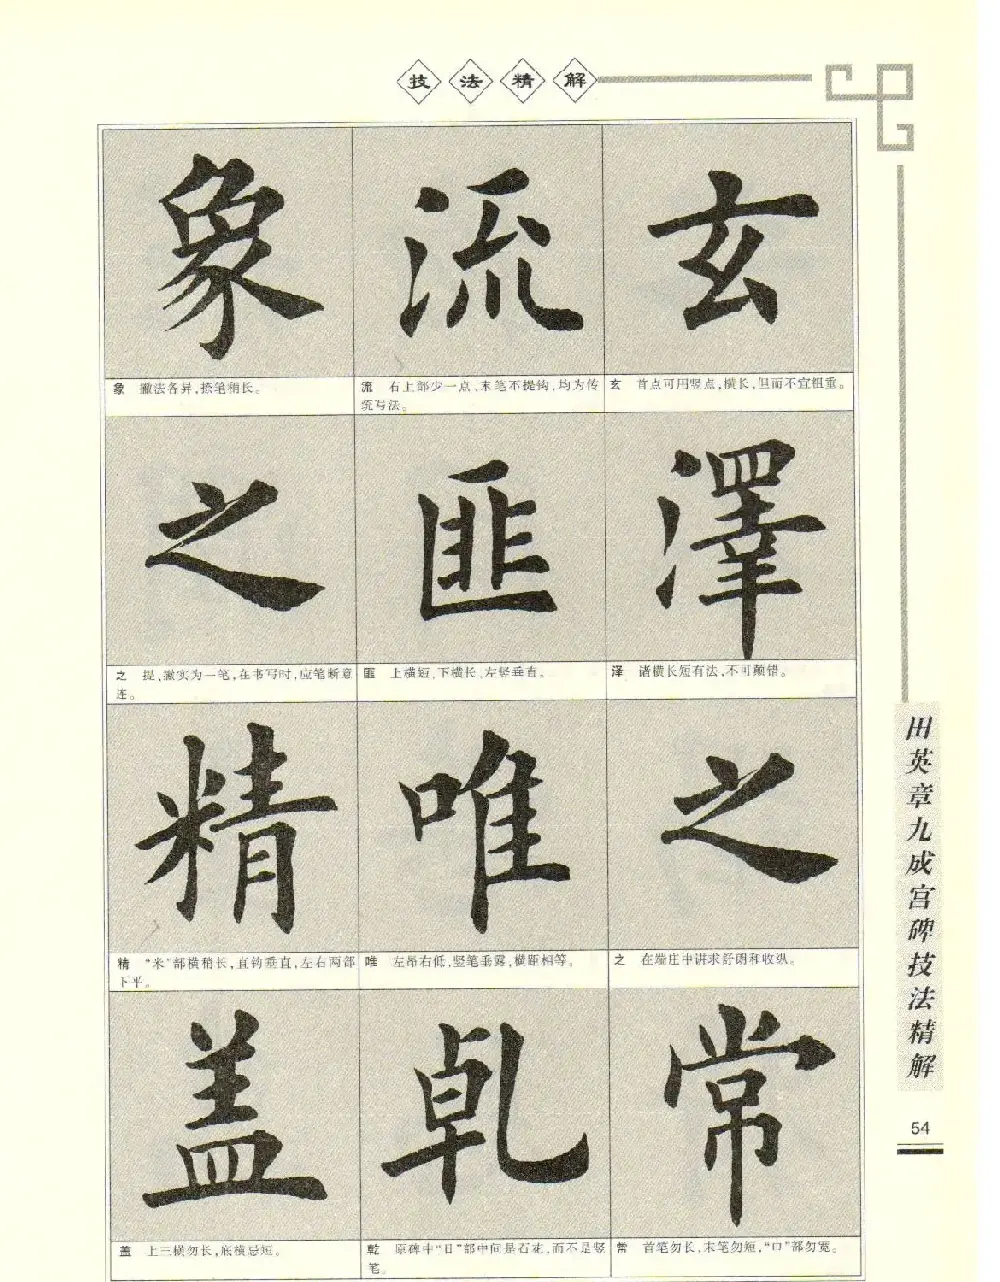 技法精解
玄
流
象
玄 首点可用竖点,横长,但而不宜粗重。
流 右上部少一点,末笔不提钩,均为传
统写法。
象 撇法各异,捺笔稍长。
澤
匪
之
泽 诸横长短有法,不可颠错。
匪 上横短,下横长,左竖垂直。
之 提,撇实为一笔,在书写时,应笔断意
连。
之
唯
精
之 在端庄中讲求舒朗和收纵。
唯 左昂右低,竖笔垂露,横距相等。
精 “米”部横稍长,直钩垂直,左右两部
下平。
常
乹
盖
常 首笔勿长,末笔勿短,“口”部勿宽。
乾 原碑中“日”部中间是石花,而不是竖
笔。
盖 上三横勿长,底横忌短。
田英章九成宫碑技法精解
54